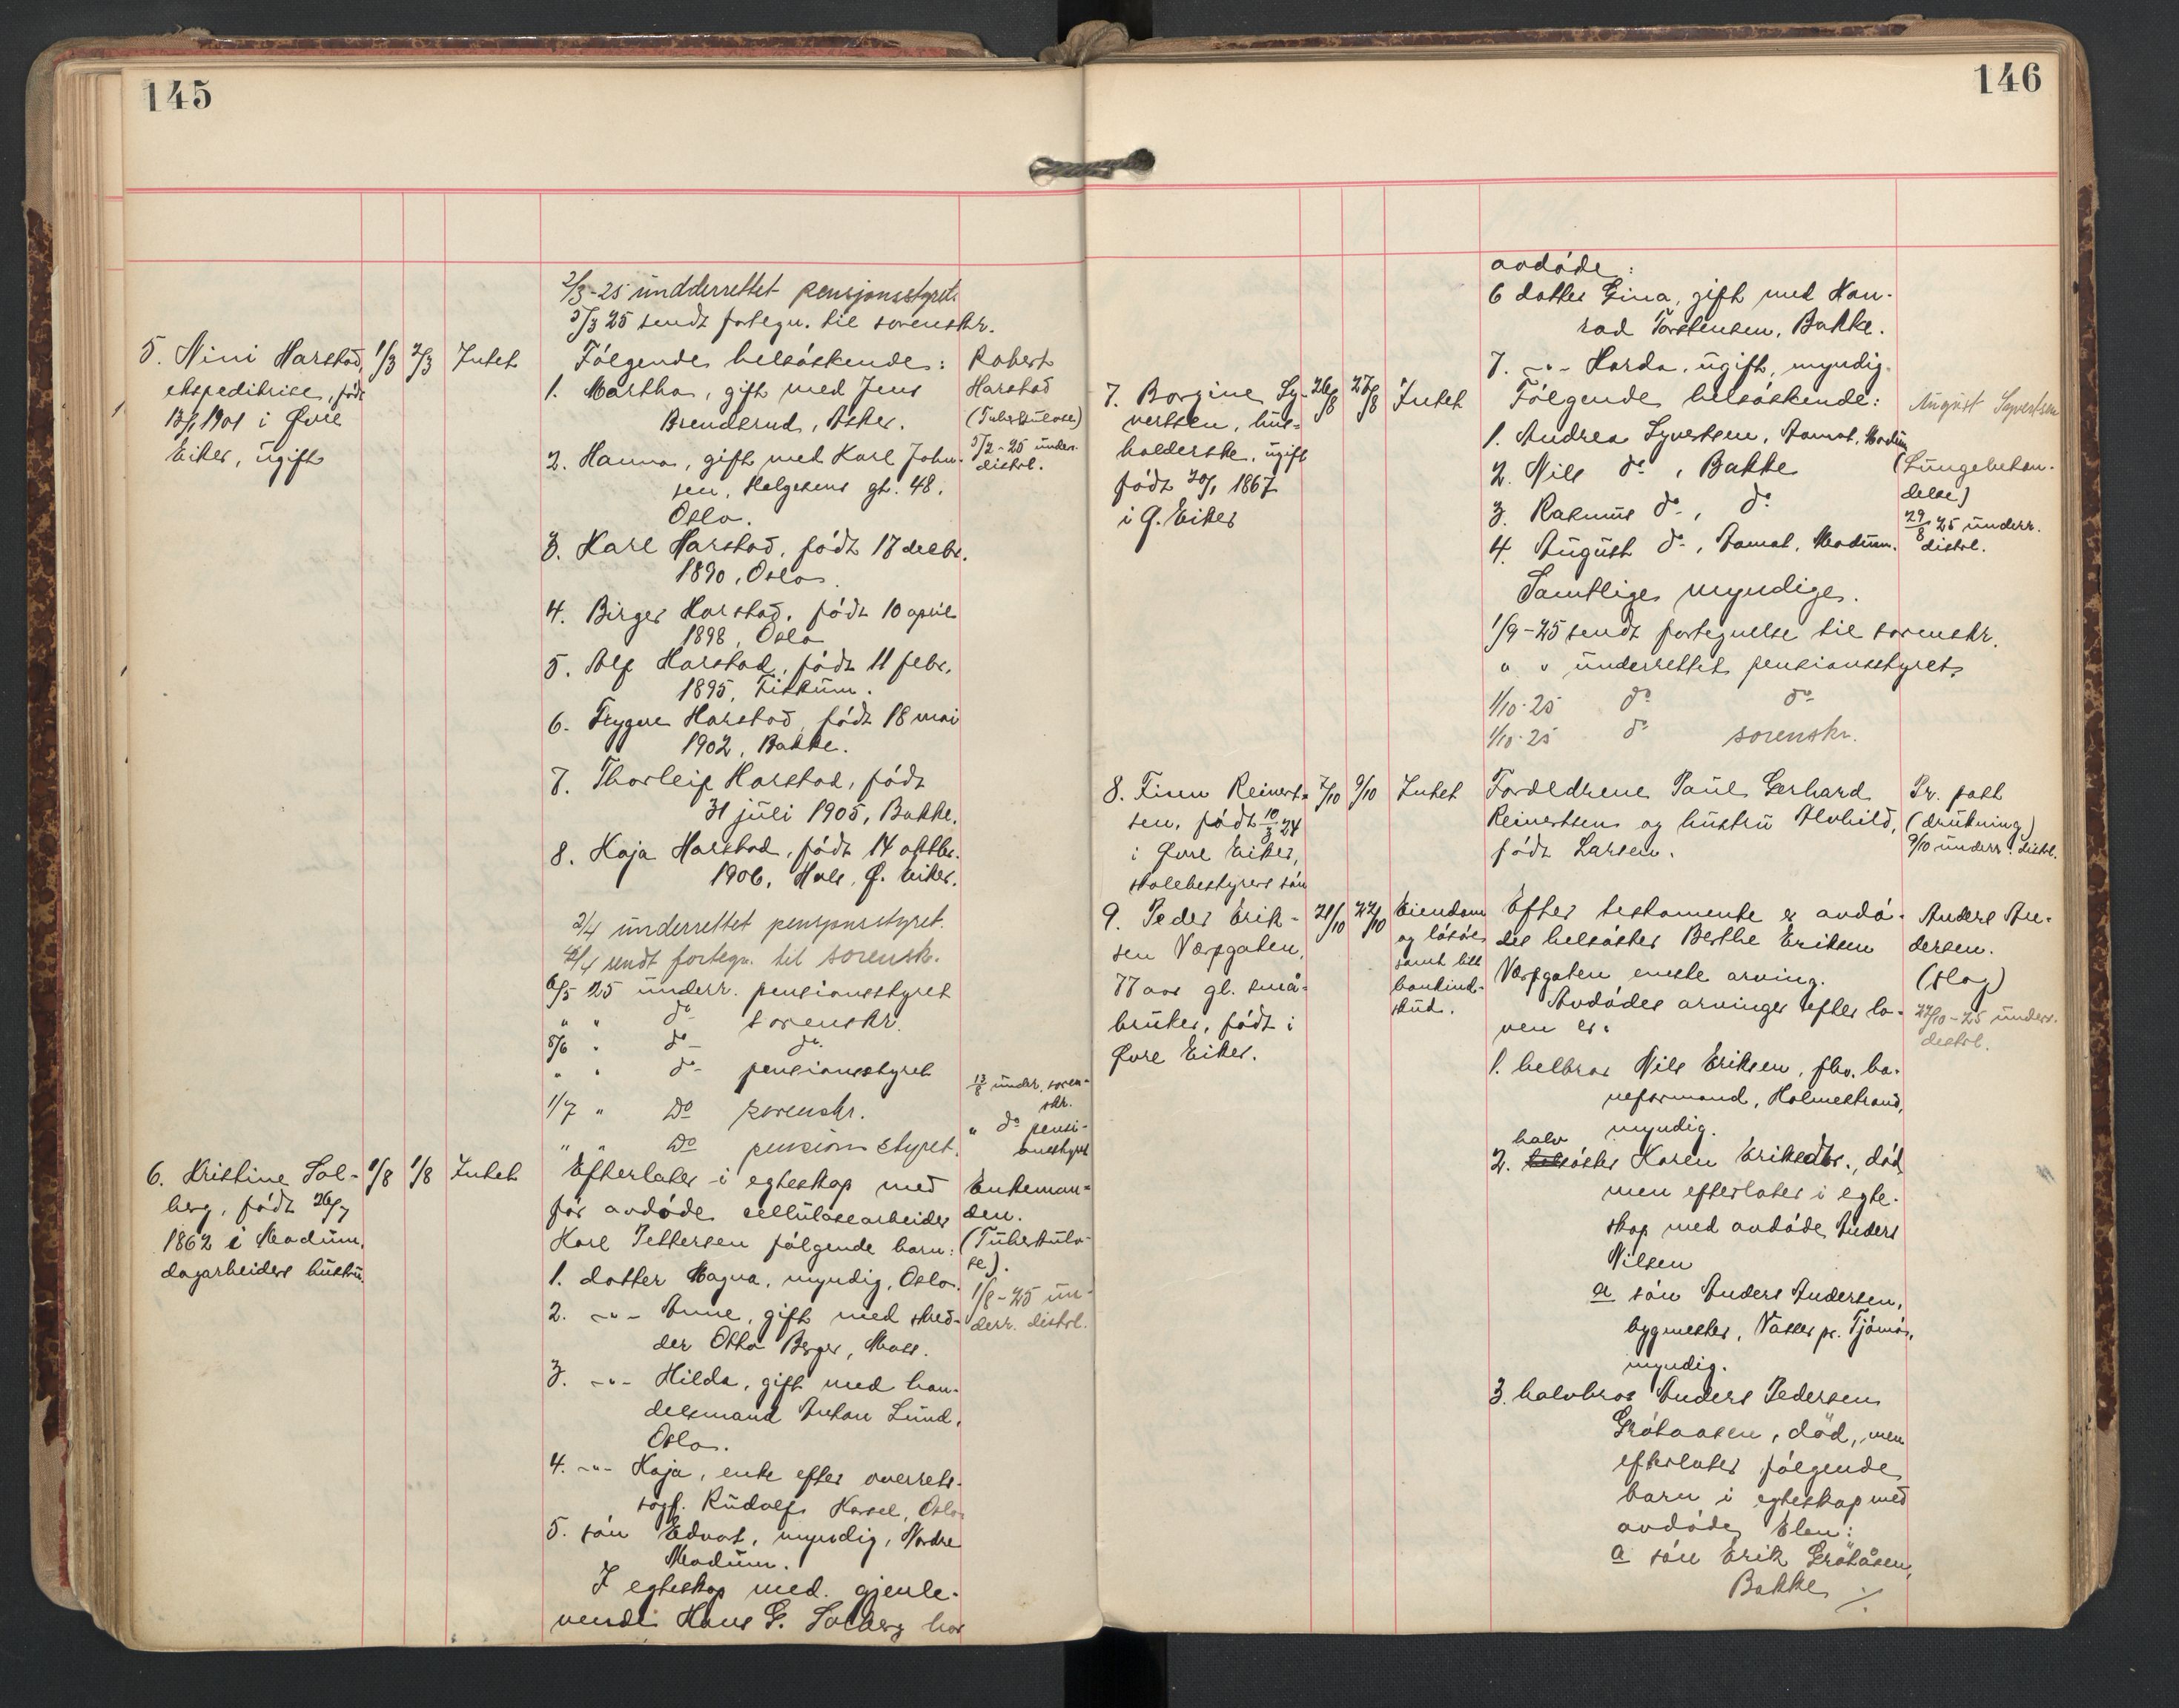 145
2/3-25 undderrettet pensjonsstyret
3/3 25 sendt fortegn. til sorenskr.
5. Nini Harstad, 1/3 2/3 Intet
ekspeditrise, født
13/1 1901 i Øvre
Eiker, ugift
Følgende helsøskende:
1. Martha, gift med Jens
Brenderud, Asker.
2. Hanna, gift med Karl Johan-
sen, Helgesens gt. 48,
Oslo.
3. Karl Harstad, født 17 decbr.
1890, Oslo.
4. Birger Harstad, født 10 april
1898, Oslo
5. Alf Harstad, født 11 febr.
1895, Fiskum.
6. Trygve Harstad, født 18 mai
1902, Bakke.
7. Thorleif Harstad, født
31 juli 1905, Bakke.
8. Kaja Harstad, født 14 oktbr.
1906, Hals, Ø. Eiker.
Robert
Harstad
(Tuberkulose)
3/2-25 underr.
distrl.
2/4 underrettet pensjonsstyret.
2/4 sendt fortegn. til sorensk.
6/5 25 underr. pensionsstyret
" " do sorenskr.
5/6 " do do
" " do pensionsstyret
1/7 " Do sorenskr.
" " Do pensionsstyret.
13/8 underr. soren-
skr.
" do pensi-
onsstyret
6. Kristine Sol- 1/8 1/8 Intet
berg, født 26/7
1862 i Modum,
dagarbeiders hustru.
Efterlater i egteskap med
før avdøde cellulosearbeider
Karl Pettersen følgende barn:
1. datter Magna, myndig, Oslo.
2. -"- Anne, gift med skred-
der Otto Berger, Moss.
3. -"- Hilda, gift med han-
delsmand Anton Lund,
Oslo.
4. -"- Kaja, enke efter overrets-
sagf. Rudolf Hassel, Oslo
5. søn Edvart, myndig, Nordre
Modum.
I egteskap med gjenle-
vende Hans G. Solberg har
Enkeman-
den.
(Tuberkulo-
se).
1/8-25 un-
derr. distrl.
146
avdøde:
6 datter Gina, gift med Kon-
rad Torstensen, Bakke.
7. -"- Harda, ugift, myndig.
7. Borgine Sy- 26/8 27/8 Intet
vertsen, hus-
holderske, ugift
født 20/1 1867
i Ø. Eiker
Følgende helsøskende:
1. Andrea Syvertsen, Aamot, Modum
2. Nils do, Bakke
3. Rasmus do, do
4. August do, Aamot, Modum.
Samtlige myndige.
1/9-25 sendt fortegnelse til sorenskr.
" " underrettet pensionsstyret
1/10-25 do do
1/10-25 do sorenskr.
August Syvertsen
(Lungebeten-
delse)
29/8 25 underr.
distrl.
8. Finn Reinert- 7/10 9/10 Intet
sen, født 10/3 24
i Øvre Eiker,
skolebestyrers søn
Foreldrene Paul Gerhard
Reinertsen og hustru Alvhild,
født Larsen.
Pr. post
(drukning)
9/10 underr. distrl.
9. Peder Erik- 21/10 22/10 Eiendom
sen Værpgaten,
77 aar gl. små-
bruker, født i
Øvre Eiker.
og løsøre
samt litt
bankind-
skud.
Efter testamente er avdø-
des helsøster Berthe Eriksen
Værpgaten eneste arving.
Avdødes arvinger efter lo-
ven er:
1. helbror Nils Eriksen, fhv. ba-
neformand, Holmestrand,
myndig.
halv
2. helsøster Karen Eriksdtr., død
men efterlater i egte-
skap med avdøde Anders
Nilsen
a søn Anders Andersen,
bygmester, Vasser pr. Tjømø,
myndig.
3. halvbror Anders Pedersen
Grøtaasen, død, men
efterlater følgende
barn i egteskap med
avdøde Elen:
a søn Erik Grøtåsen,
Bakke ./.
Anders An-
dersen.
(slag)
22/10-25 underr.
distrl.